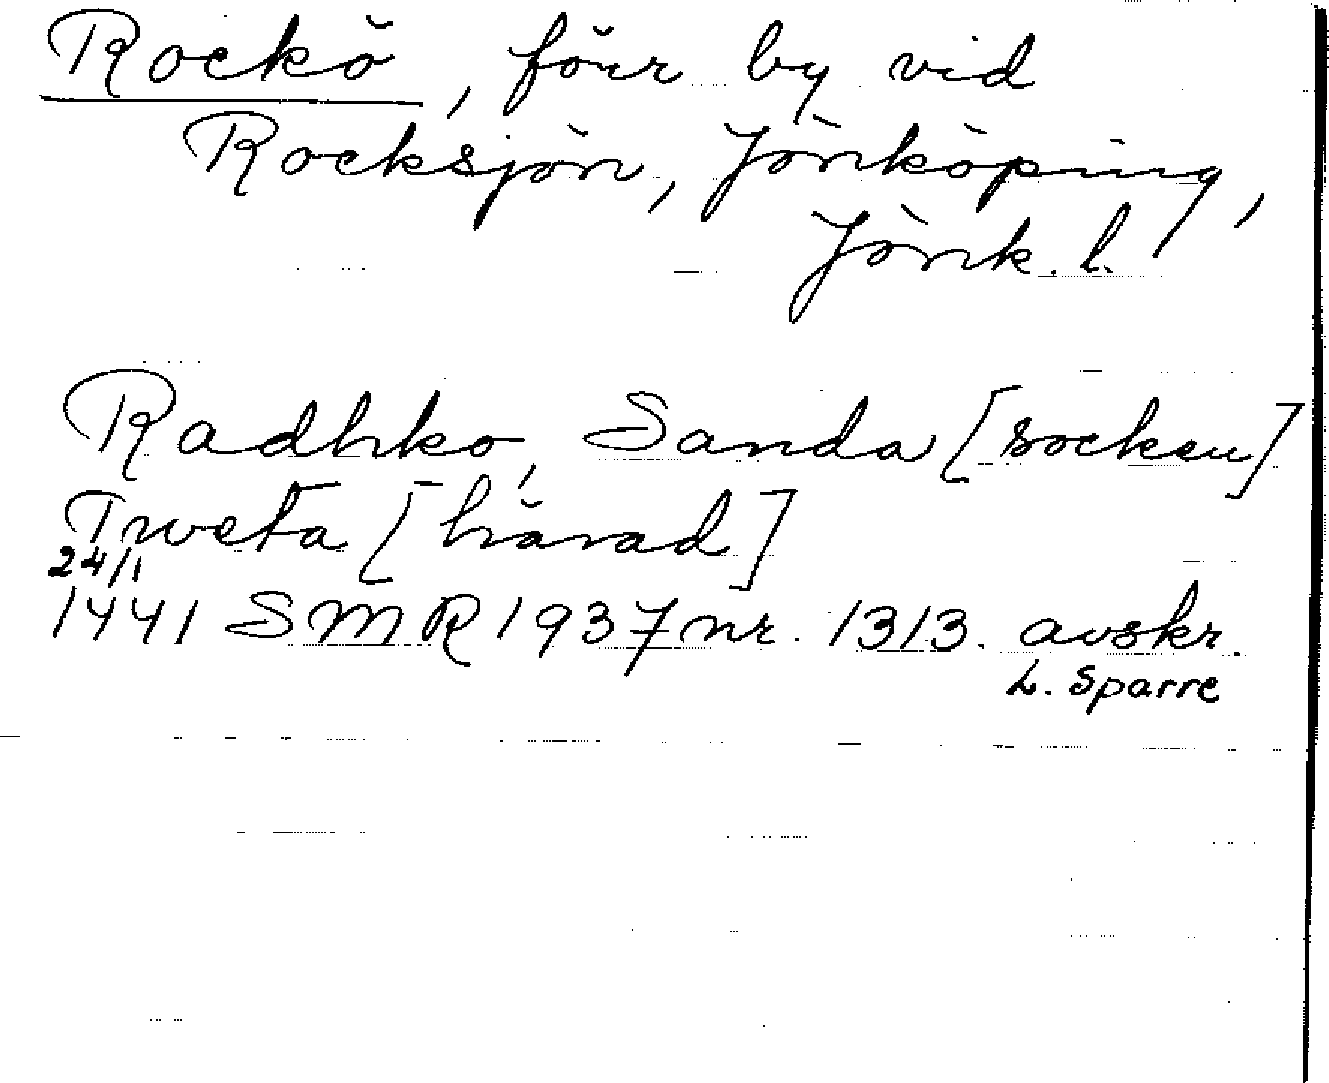 Rockö, förr by vid
Rocksjön, Jönköping,
Jönk. l.
Radhko, Sanda [socken]
Tweta [härad]
24/1
1441 SMR 1937 nr. 1313. avskr.
L. Sparre